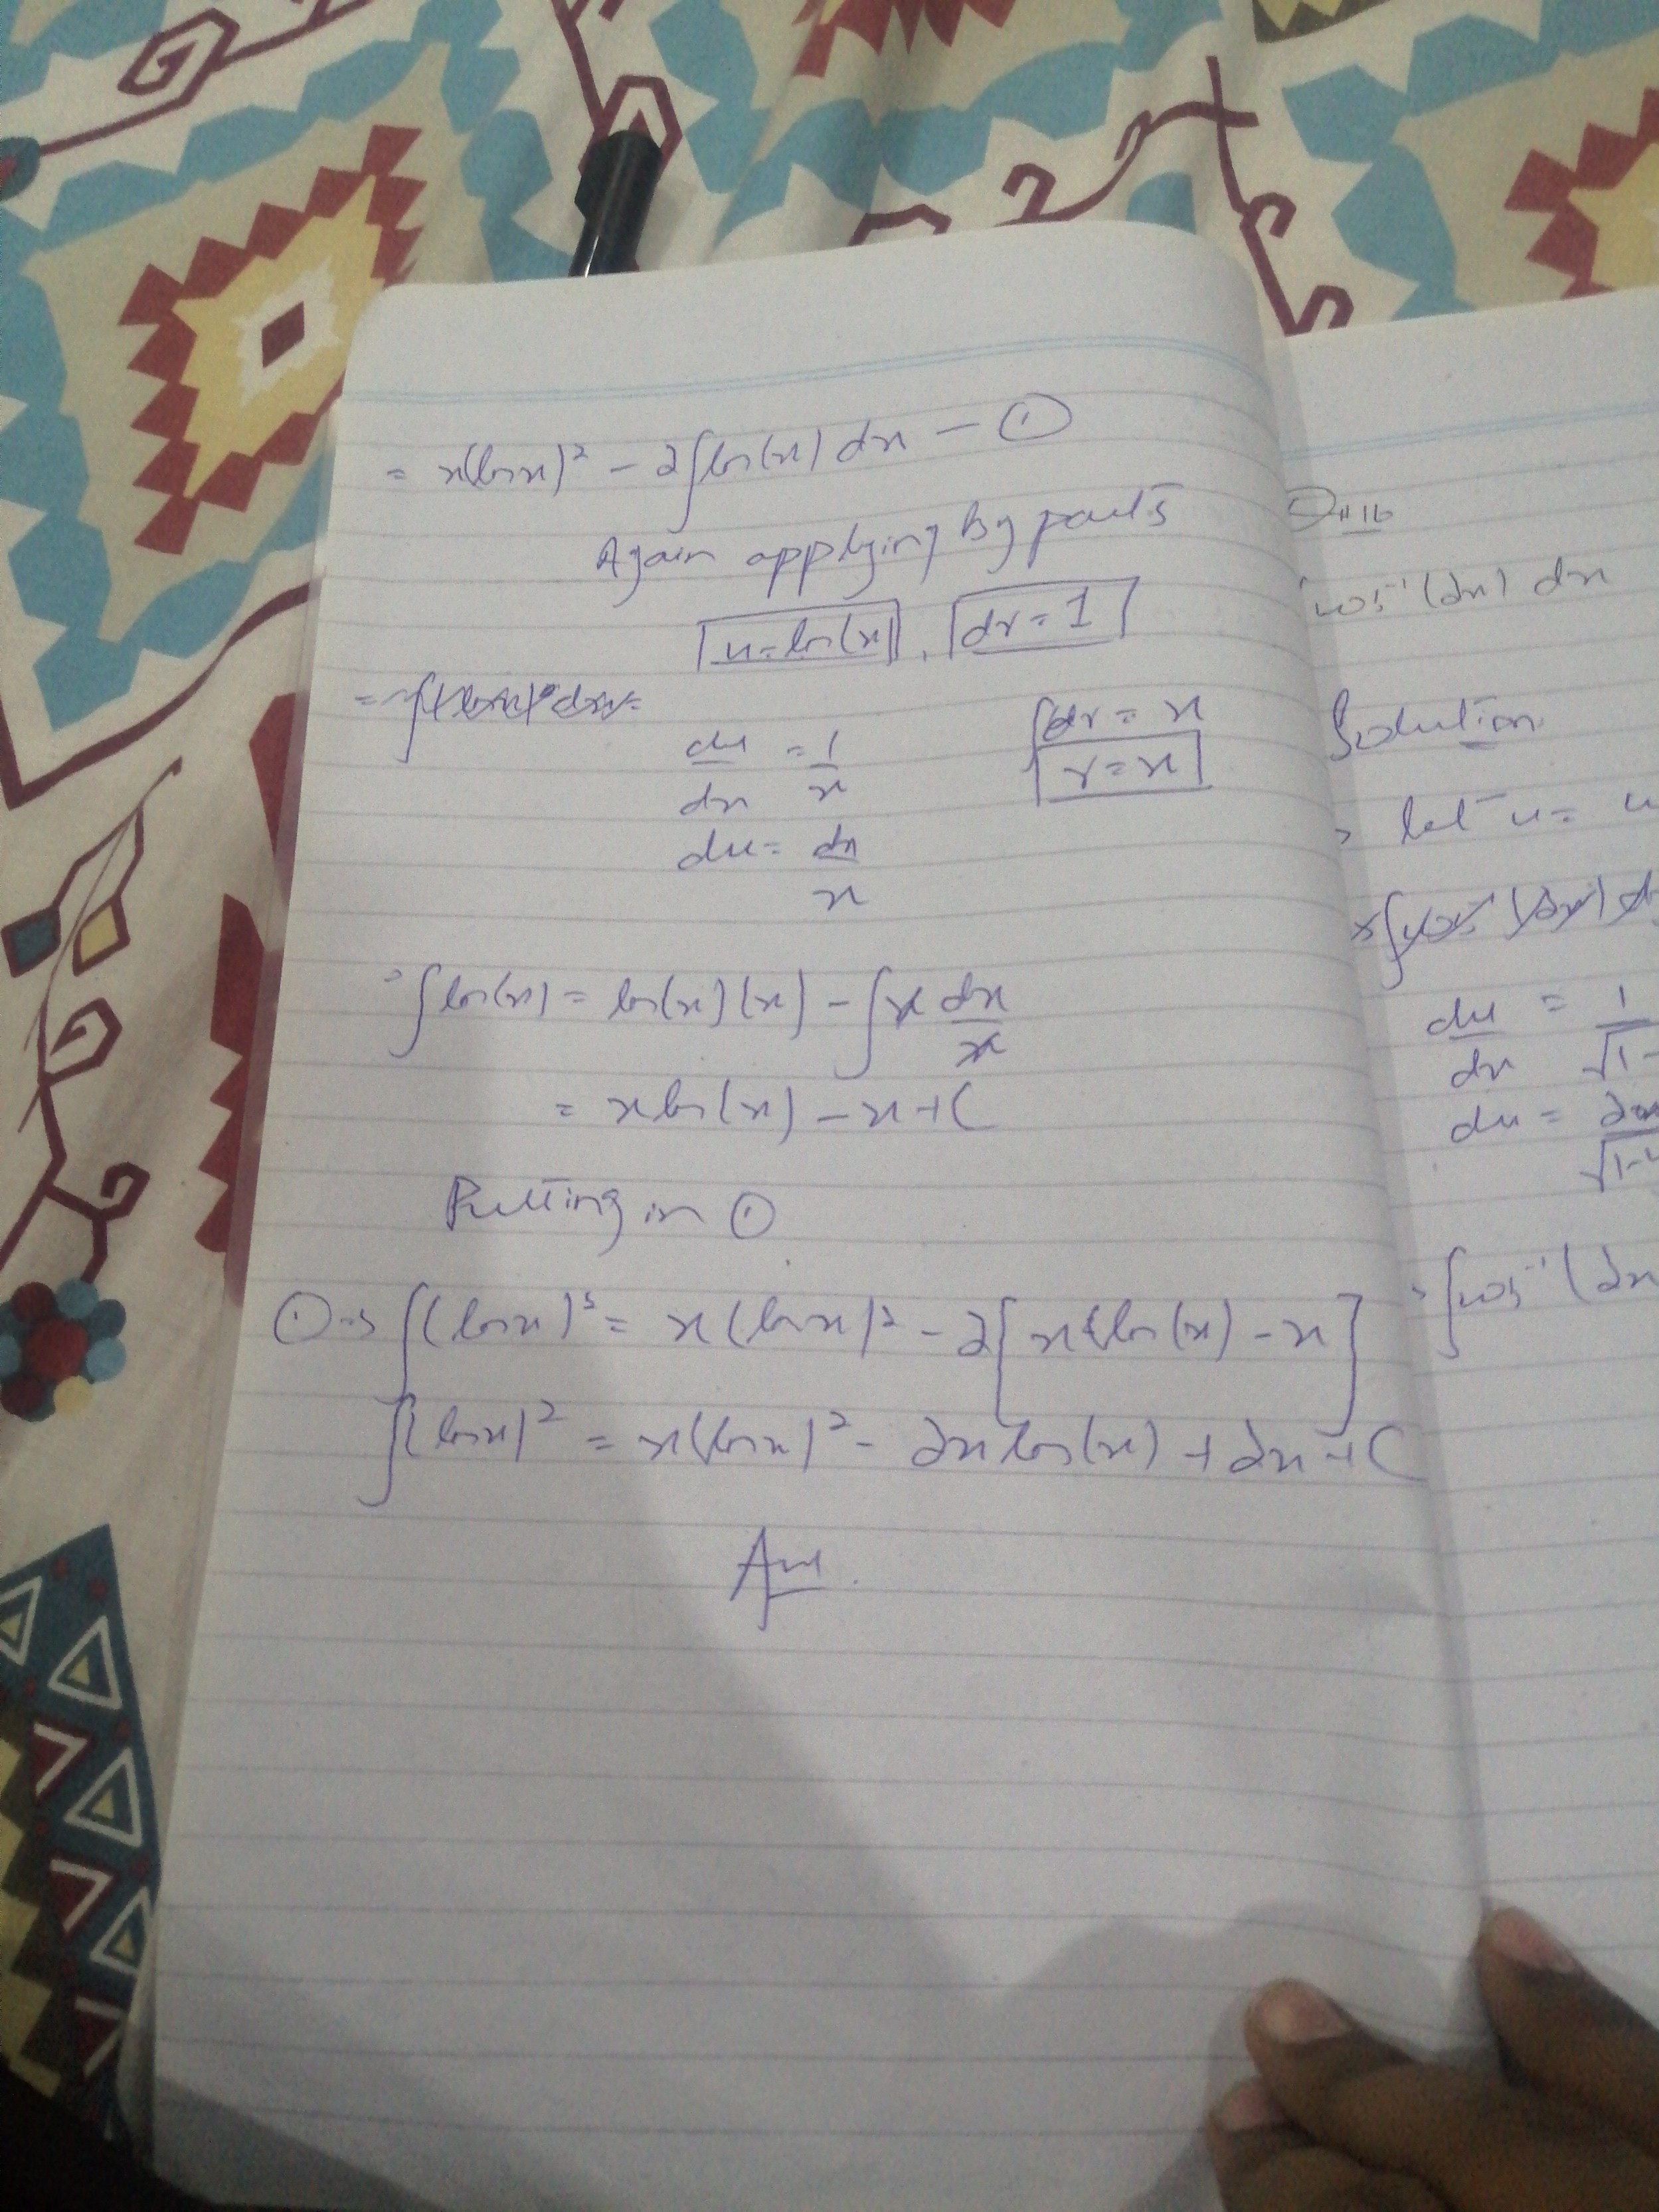 = x(lnx)² - 2∫ln(x) dx — ①
Again applying By parts
u=ln(x) , dv=1
du/dx = 1/x
∫dv = x
v=x
du = dx/x
∫ln(x) = ln(x)(x) - ∫x dx/x
= xln(x) - x + C
Putting in ①
①→ ∫(lnx)² = x(lnx)² - 2[xln(x) - x]
∫(lnx)² = x(lnx)² - 2xln(x) + 2x + C
Ans.
Q#16
∫cos⁻¹(2x) dx
Solution
let u=
du/dx = 1/√1-
du =
∫cos⁻¹(2x